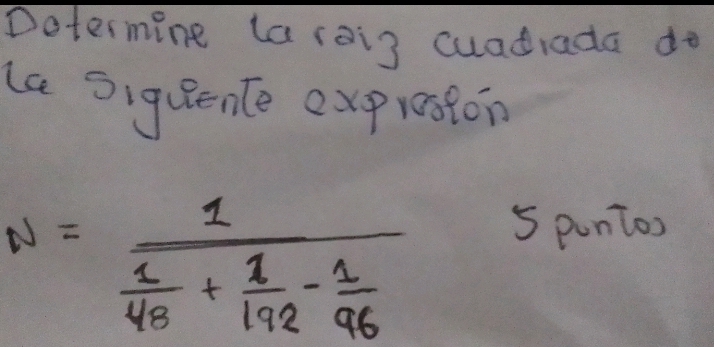 Determine la raiz cuadrada de
la siguiente expresión
N = 1 / (1/48 + 1/192 - 1/96) 5 puntos